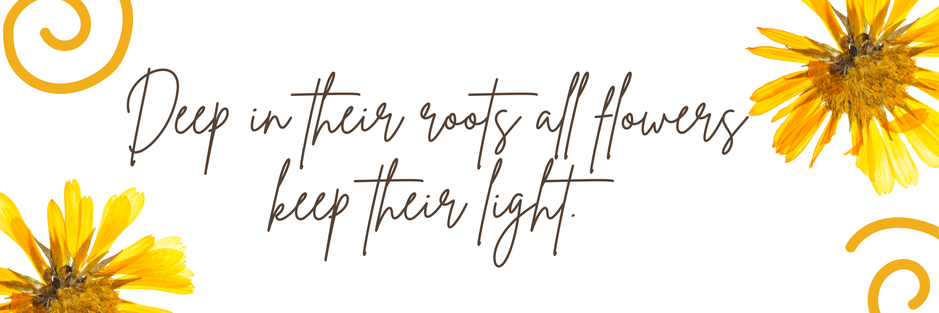 Deep in their roots all flowers
keep their light.